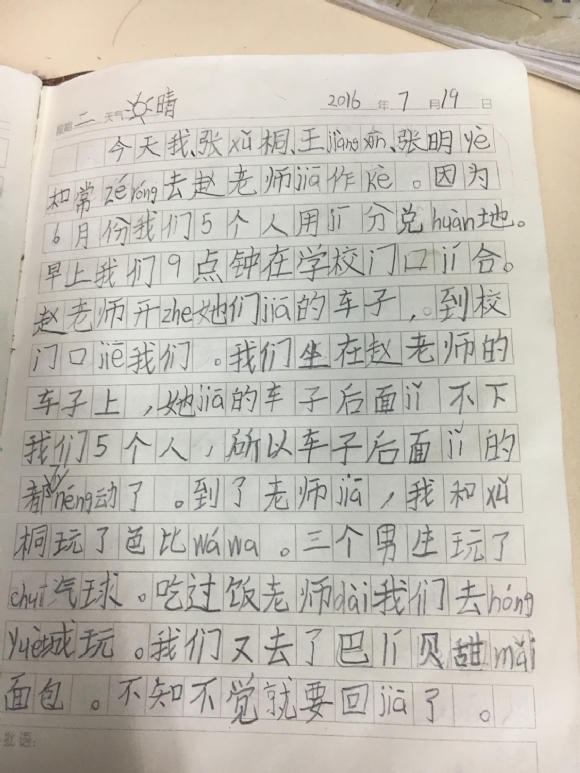 星期 二 天气 晴 2016 年 7 月 19 日
今天我、张xǔ桐、王jiāng 、张明yè
和常zé róng去赵老师jiā作kè。因为
6月份我们5个人用jī分兑huàn地。
早上我们9点钟在学校门口jí合。
赵老师开zhe她们jiā的车子,。到校
门口jiē我们。我们坐在赵老师的
车子上,她jiā的车子后面jǐ不下
我们5个人,所以车子后面jǐ的
都 néng动了。到了老师jiā,我和xǔ
桐玩了芭比wá wa。三个男生玩了
chuī汽球。吃过饭老师dài我们去hóng
yuè城玩。我们又去了巴lí贝甜mǎi
面包。不知不觉就要回jiā了。
批语: